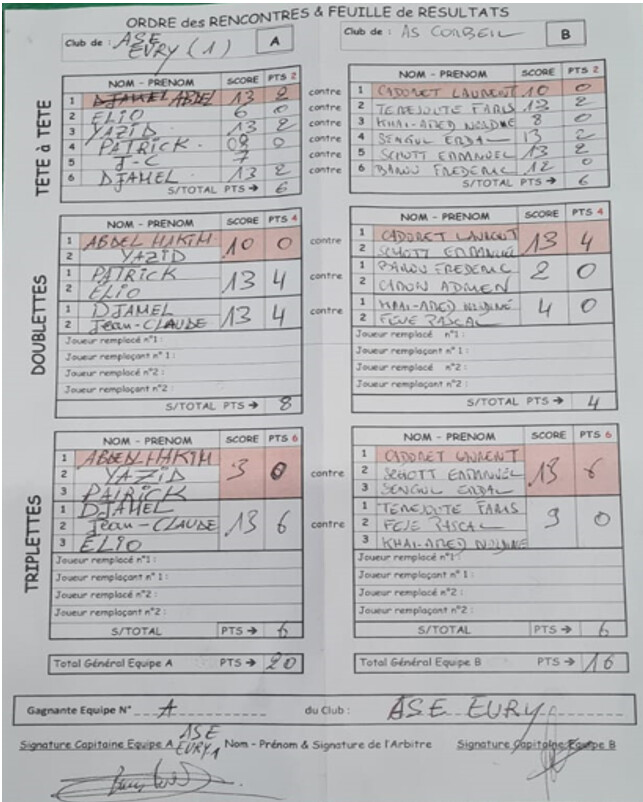 ORDRE des RENCONTRES & FEUILLE de RESULTATS
Club de : ASE EVRY (1) A
Club de : AS CORBEIL B
TETE à TETE
NOM - PRENOM SCORE PTS 2
1 ABDEL 13 2
2 ELIO 6 0
3 YAZID 13 2
4 PATRICK 08 0
5 J-C 7
6 DJAMEL 13 2
S/TOTAL PTS → 6
contre
contre
contre
contre
contre
contre
NOM - PRENOM SCORE PTS 2
1 CADORET LAURENT 10 0
2 FARIS 13 2
3 8 0
4 SENGUL ERDAL 13 2
5 SCHOTT EMMANUEL 13 2
6 BAROU FREDERIC 12 0
S/TOTAL PTS → 6
DOUBLETTES
NOM - PRENOM SCORE PTS 4
1 ABDEL HAKIM 10 0
2 YAZID
1 PATRICK 13 4
2 ELIO
1 DJAMEL 13 4
2 Jean-CLAUDE
Joueur remplacé n°1 :
Joueur remplaçant n° 1 :
Joueur remplacé n°2 :
Joueur remplaçant n°2 :
S/TOTAL PTS → 8
contre
contre
contre
NOM - PRENOM SCORE PTS 4
1 CADORET LAURENT 13 4
2 SCHOTT EMMANUEL
1 BAROU FREDERIC 2 0
2 CARON
1 4 0
2 FEVE PASCAL
Joueur remplacé n°1 :
Joueur remplaçant n°1 :
Joueur remplacé n°2 :
Joueur remplaçant n°2 :
S/TOTAL PTS → 4
TRIPLETTES
NOM - PRENOM SCORE PTS 6
1 ABDEL HAKIM 3 0
2 YAZID
3 PATRICK
1 DJAMEL 13 6
2 Jean-CLAUDE
3 ELIO
Joueur remplacé n°1 :
Joueur remplaçant n° 1 :
Joueur remplacé n°2 :
Joueur remplaçant n°2 :
S/TOTAL PTS → 6
contre
contre
NOM - PRENOM SCORE PTS 6
1 CADORET LAURENT 13 6
2 SCHOTT EMMANUEL
3 SENGUL ERDAL
1 FARIS 9 0
2 FEVE PASCAL
3
Joueur remplacé n°1 :
Joueur remplaçant n°1 :
Joueur remplacé n°2 :
Joueur remplaçant n°2 :
S/TOTAL PTS → 6
Total Général Equipe A PTS → 20
Total Général Equipe B PTS → 16
Gagnante Equipe N° A du Club : ASE EVRY
Signature Capitaine Equipe A ASE EVRY 1 Nom - Prénom & Signature de l'Arbitre Signature Capitaine Equipe B